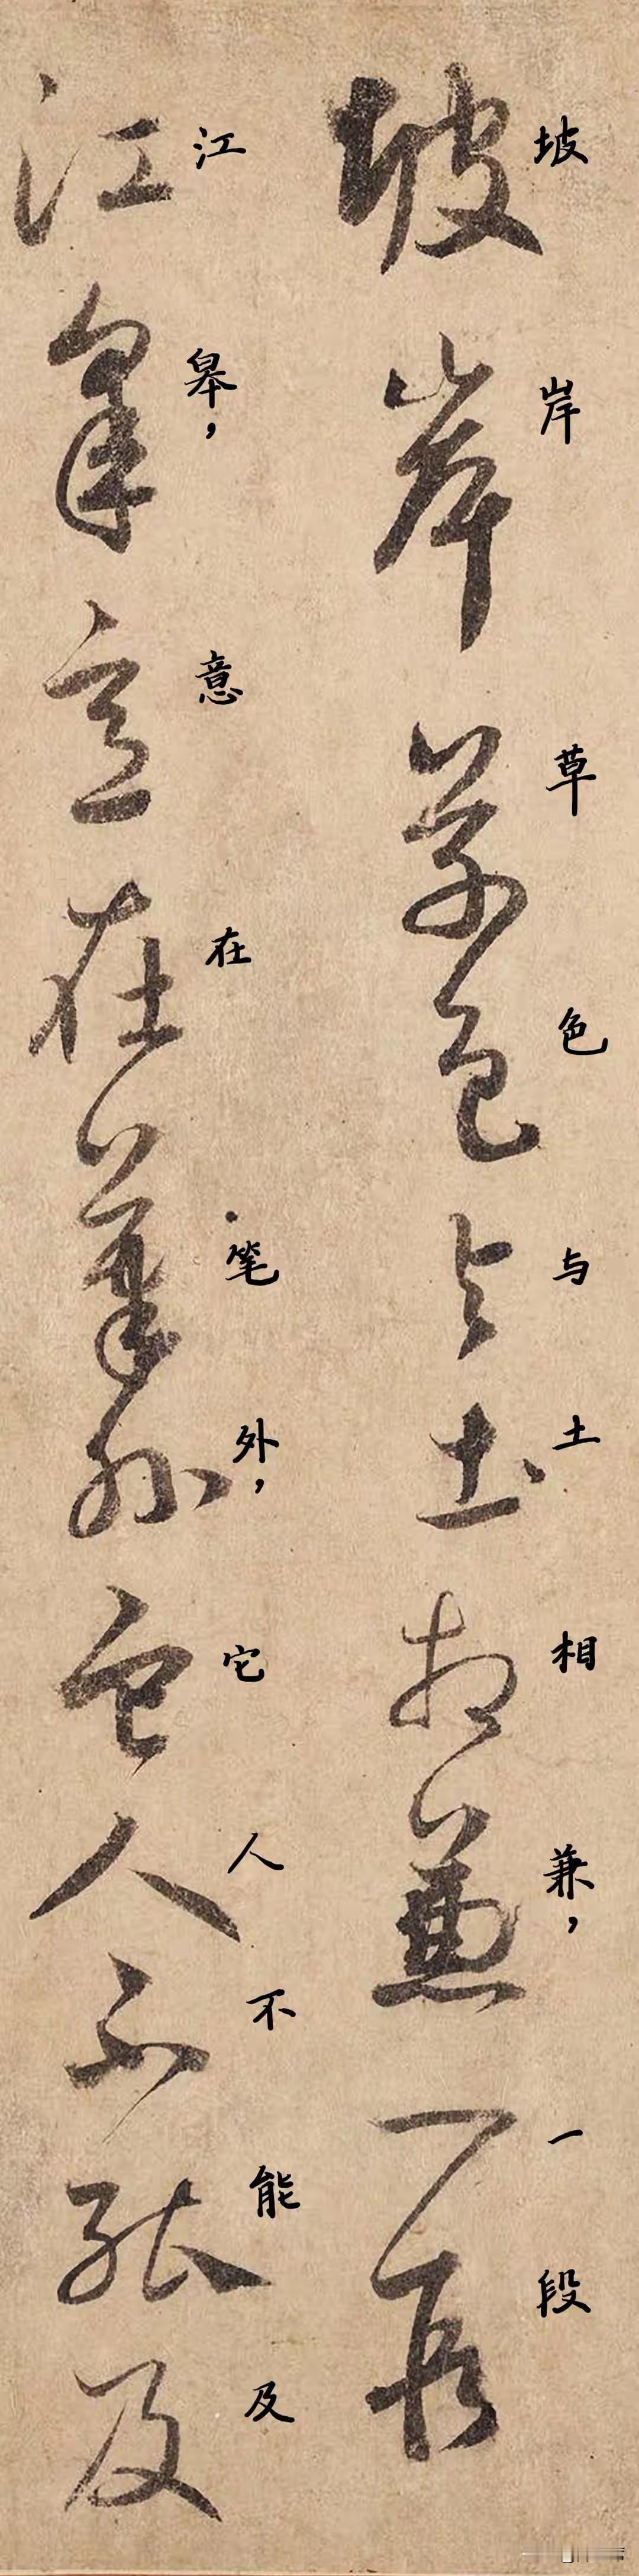 坡岸草色与土相兼，一段
江皋，意在笔外，它人不能及